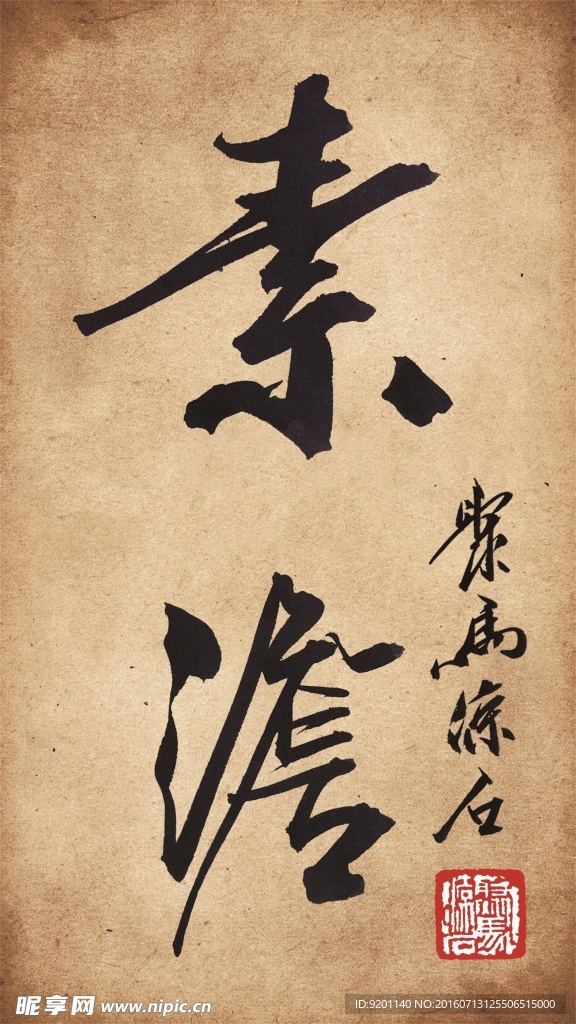 素
澹
聚馬涼石
昵享网 www.nipic.cn
ID:9201140 NO:20160713125506515000